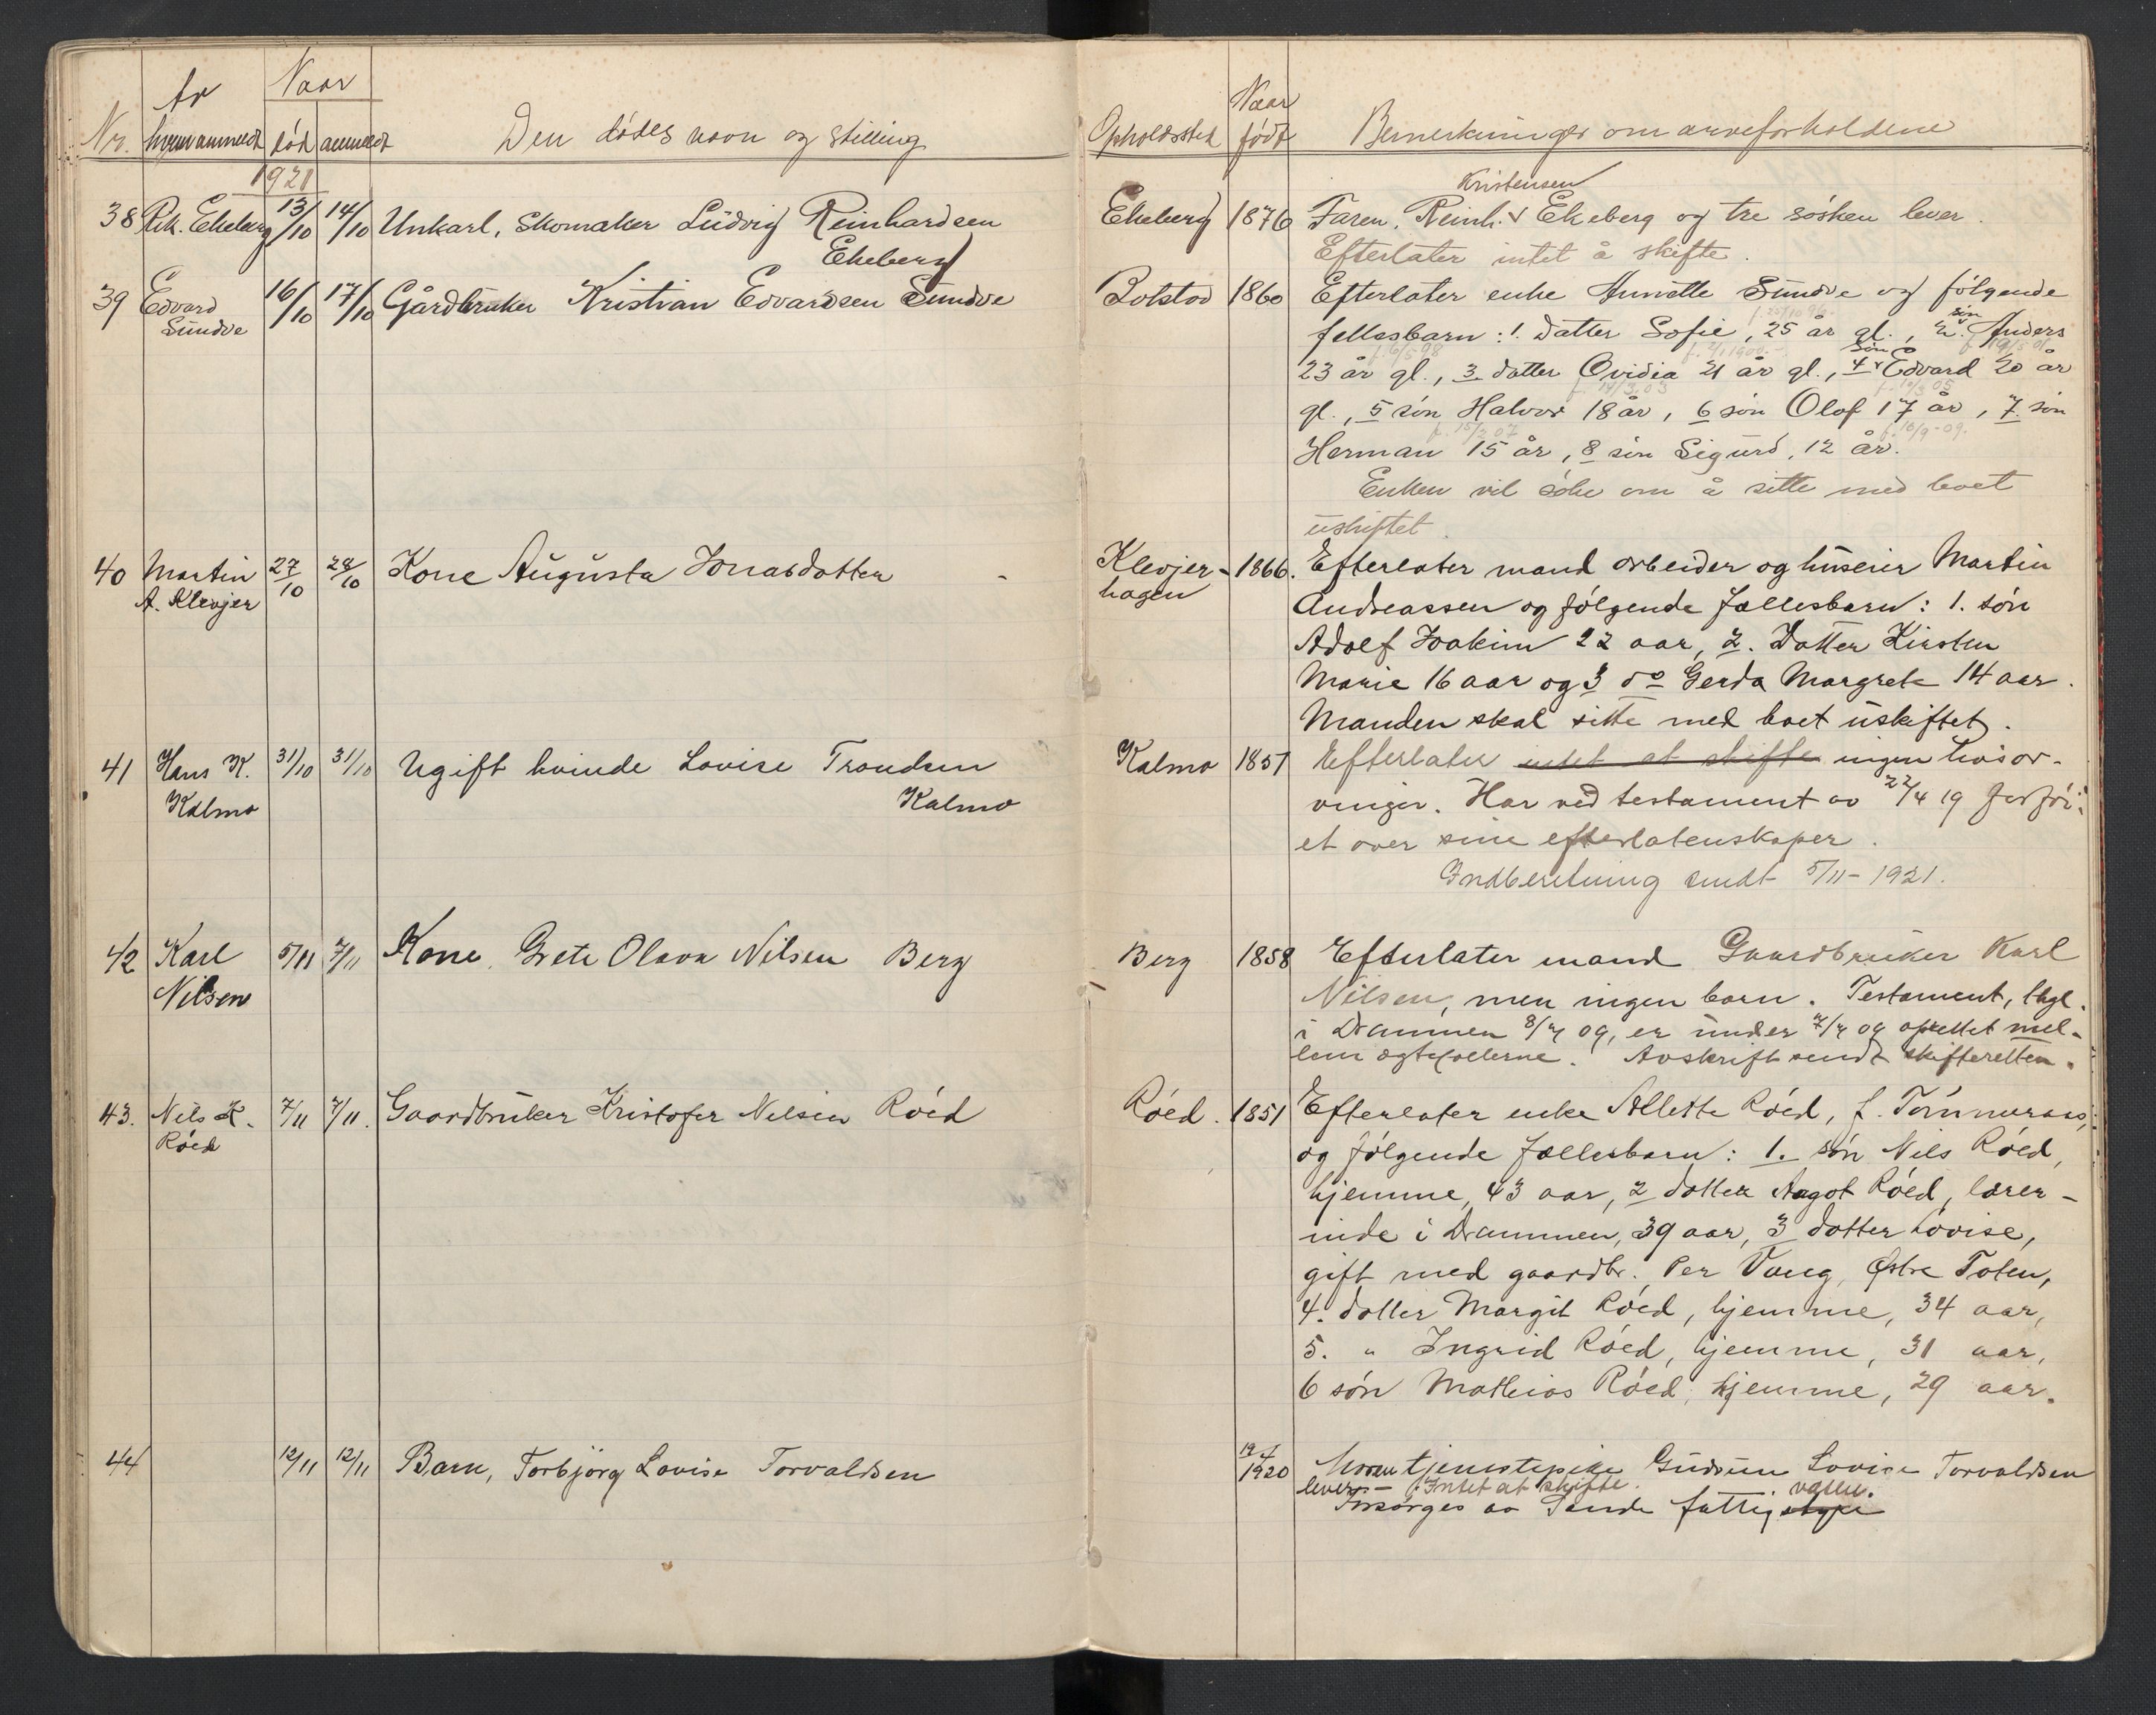 Nr. Av hvem anmeldt Naar død anmeldt Den dødes navn og stilling Opholdssted Naar født Bemerkninger om arveforholdene
1921
38 Rik. Ekeberg 13/10 14/10 Unkarl, Skomaker Ludvig Reinhardsen Ekeberg
Ekeberg 1876 Faren, Reinh. Kristensen Ekeberg og tre søsken lever.
Efterlater intet å skifte.
39 Edvard Sundve 16/10 17/10 Gårdbruker Kristian Edvardsen Sundve
1860 Efterlater enke Annette Sundve og følgende
fellesbarn: 1. datter Sofie, 25 år gl., 2. søn Anders
f. 6/5 98 f. 2/1 1900 f. 19/5 01
23 år gl., 3. datter Ovidia 21 år gl., 4 søn Edvard 20 år
f. 14/3 03
gl., 5 søn Halvor 18 år, 6 søn Olaf 17 år, 7. søn
f. 15/2 07 f. 10/9-09.
Herman 15 år, 8 søn Sigurd, 12 år.
Enken vil søke om å sitte med boet
uskiftet.
40 Martin A. Klevjer 27/10 28/10 Kone Augusta Jonasdatter -
Klevjer-hagen 1866. Efterlater mand arbeider og huseier Martin
Andreassen og følgende fællesbarn: 1. søn
Adolf Joakim 22 aar, 2. Datter Kirsten
Marie 16 aar og 3 do Gerda Margrete 14 aar.
Manden skal sitte med boet uskiftet.
41 Hans K. Kalmo 31/10 31/10 Ugift kvinde Lovise Trondsen Kalmo
Kalmo 1851 Efterlater intet at skifte ingen livsar-
vinger. Har ved testament av 22/4 19 forføi-
et over sine efterlatenskaper.
Indberetning sendt 5/11-1921.
42 Karl Nilsen 5/11 7/11 Kone Grete Olava Nilsen Berg
Berg 1858 Efterlater mand Gaardbruker Karl
Nilsen, men ingen barn. Testament, thgl.
i Drammen 8/7 09, er under 7/7 09 oprettet mel-
lem ægtefællerne. Avskrift sendt skifteretten.
43. Nils K. Röed 7/11 7/11. Gaardbruker Kristofer Nilsen Röed
Röed. 1851 Efterlater enke Allette Röed, f. Tömmeraas,
og følgende fællesbarn: 1. søn Nils Röed,
hjemme, 43 aar, 2 datter Aagot Röed, lærer-
inde i Drammen, 39 aar, 3 datter Lovise,
gift med gaardbr. Per Vang, Østre Toten,
4. datter Margit Röed, hjemme, 34 aar,
5. " Ingrid Röed, hjemme, 31 aar,
6 søn Mathias Röed, hjemme, 29 aar.
44 12/11 12/11 Barn, Torbjørg Lovise Torvaldsen
1920 Moren tjenestepike Gudrun Lovise Torvaldsen
lever. - Intet at skifte.
Forsørges av Sande fattigstyre væsen.